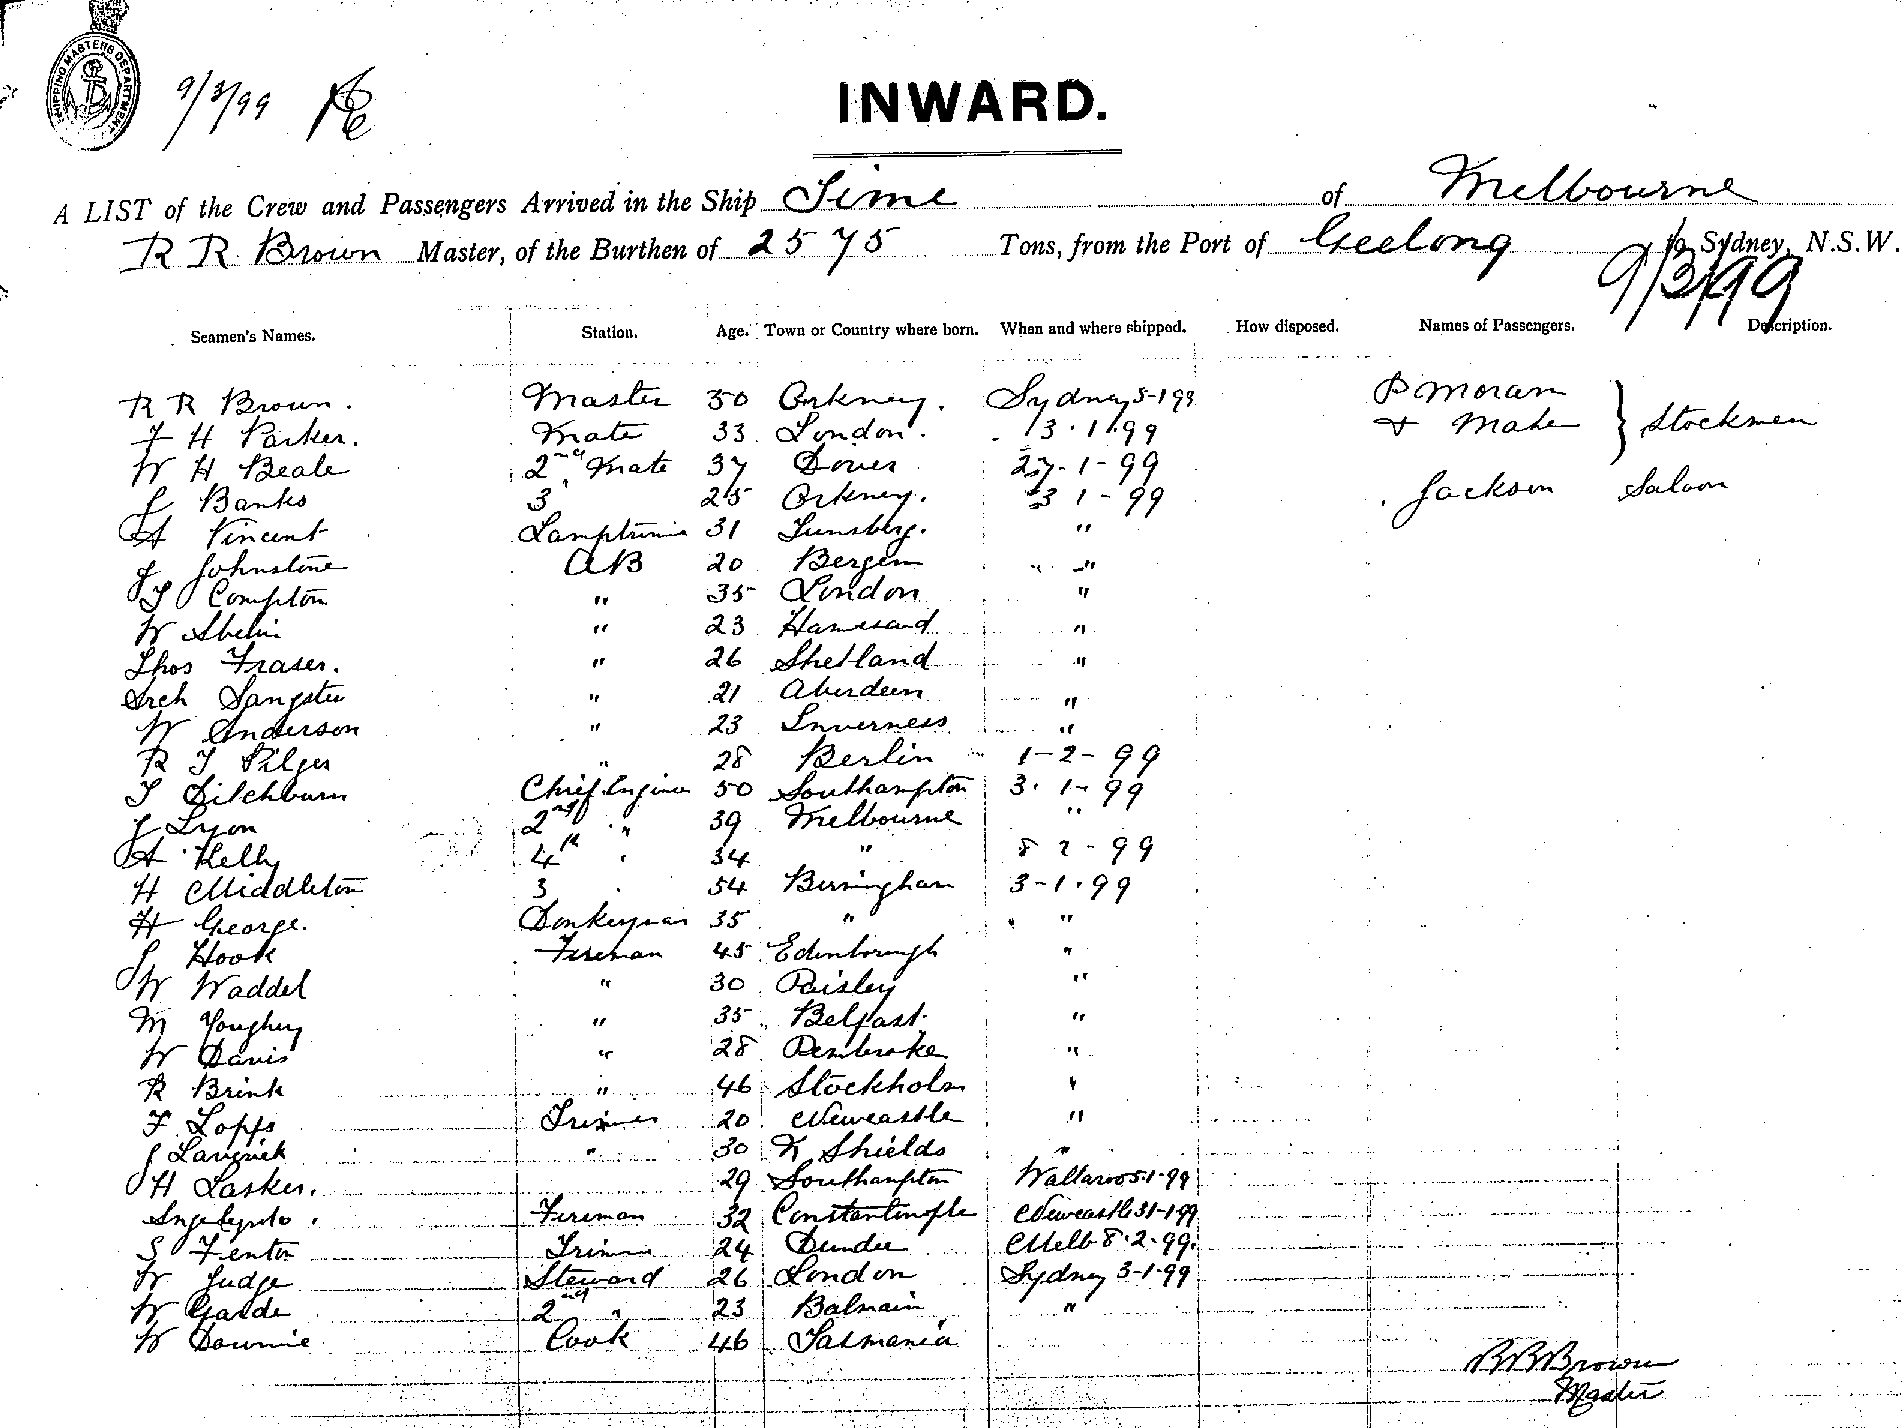 SHIPPING MASTERS DEPARTMENT
9/3/99
INWARD.
A LIST of the Crew and Passengers Arrived in the Ship Time of Melbourne
R R Brown Master, of the Burthen of 2575 Tons, from the Port of Geelong to Sydney, N.S.W.
9/3/99
Seamen's Names. Station. Age. Town or Country where born. When and where shipped. How disposed. Names of Passengers. Description.
R R Brown. Master 50 Orkney. Sydney 5-1 99 P Moran
F H Parker. Mate 33 London. 3.1.99 + Mate } Stockmen
W H Beale 2nd Mate 37 Dover 27-1-99
J Banks 3 25 Orkney. 3 1-99 Jackson Saloon
A Vincent Lamptrimer 31 Tunsberg. "
J Johnstone AB 20 Bergen " "
T Compton " 35 London "
W " 23 "
Thos Fraser. " 26 Shetland "
Arch Sangster " 21 Aberdeen "
W Anderson " 23 Inverness "
R T Pilger " 28 Berlin 1-2-99
T Ditchburn Chief Engineer 50 Southampton 3.1-99
J Lyon 2nd " 39 Melbourne "
A Kelly 4th " 34 " 8 2-99
H Middleton 3 54 Birmingham 3-1.99
H George. Donkeyman 35 " " "
J Hook Fireman 45 Edinborough "
W Waddel " 30 Paisley "
M Youghey " 35 Belfast "
W Davis " 28 Pembroke "
R Brink " 46 Stockholm "
F Lopps Trimmer 20 Newcastle "
J " 30 N Shields "
H Lasker. 29 Southampton Wallaroo 5-1-99
Fireman 32 Constantinople Newcastle 31-1-99
S Fenton Trimmer 24 Dundee Melb 8.2-99.
W Judge Steward 26 London Sydney 3-1-99
W Garde 2nd " 23 Balmain "
W Downie Cook 46 Tasmania
R R Brown
Master